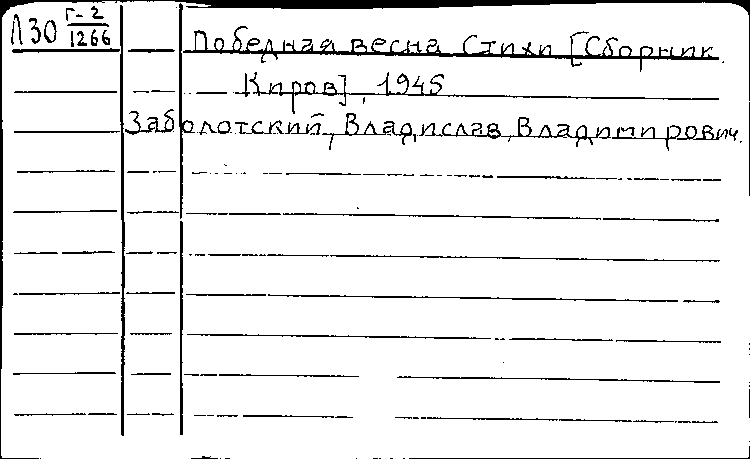 Л30 Г-2
1266
Победная весна Стихи [Сборник.
Киров], 1945
Заболотский, Владислав Владимирович.